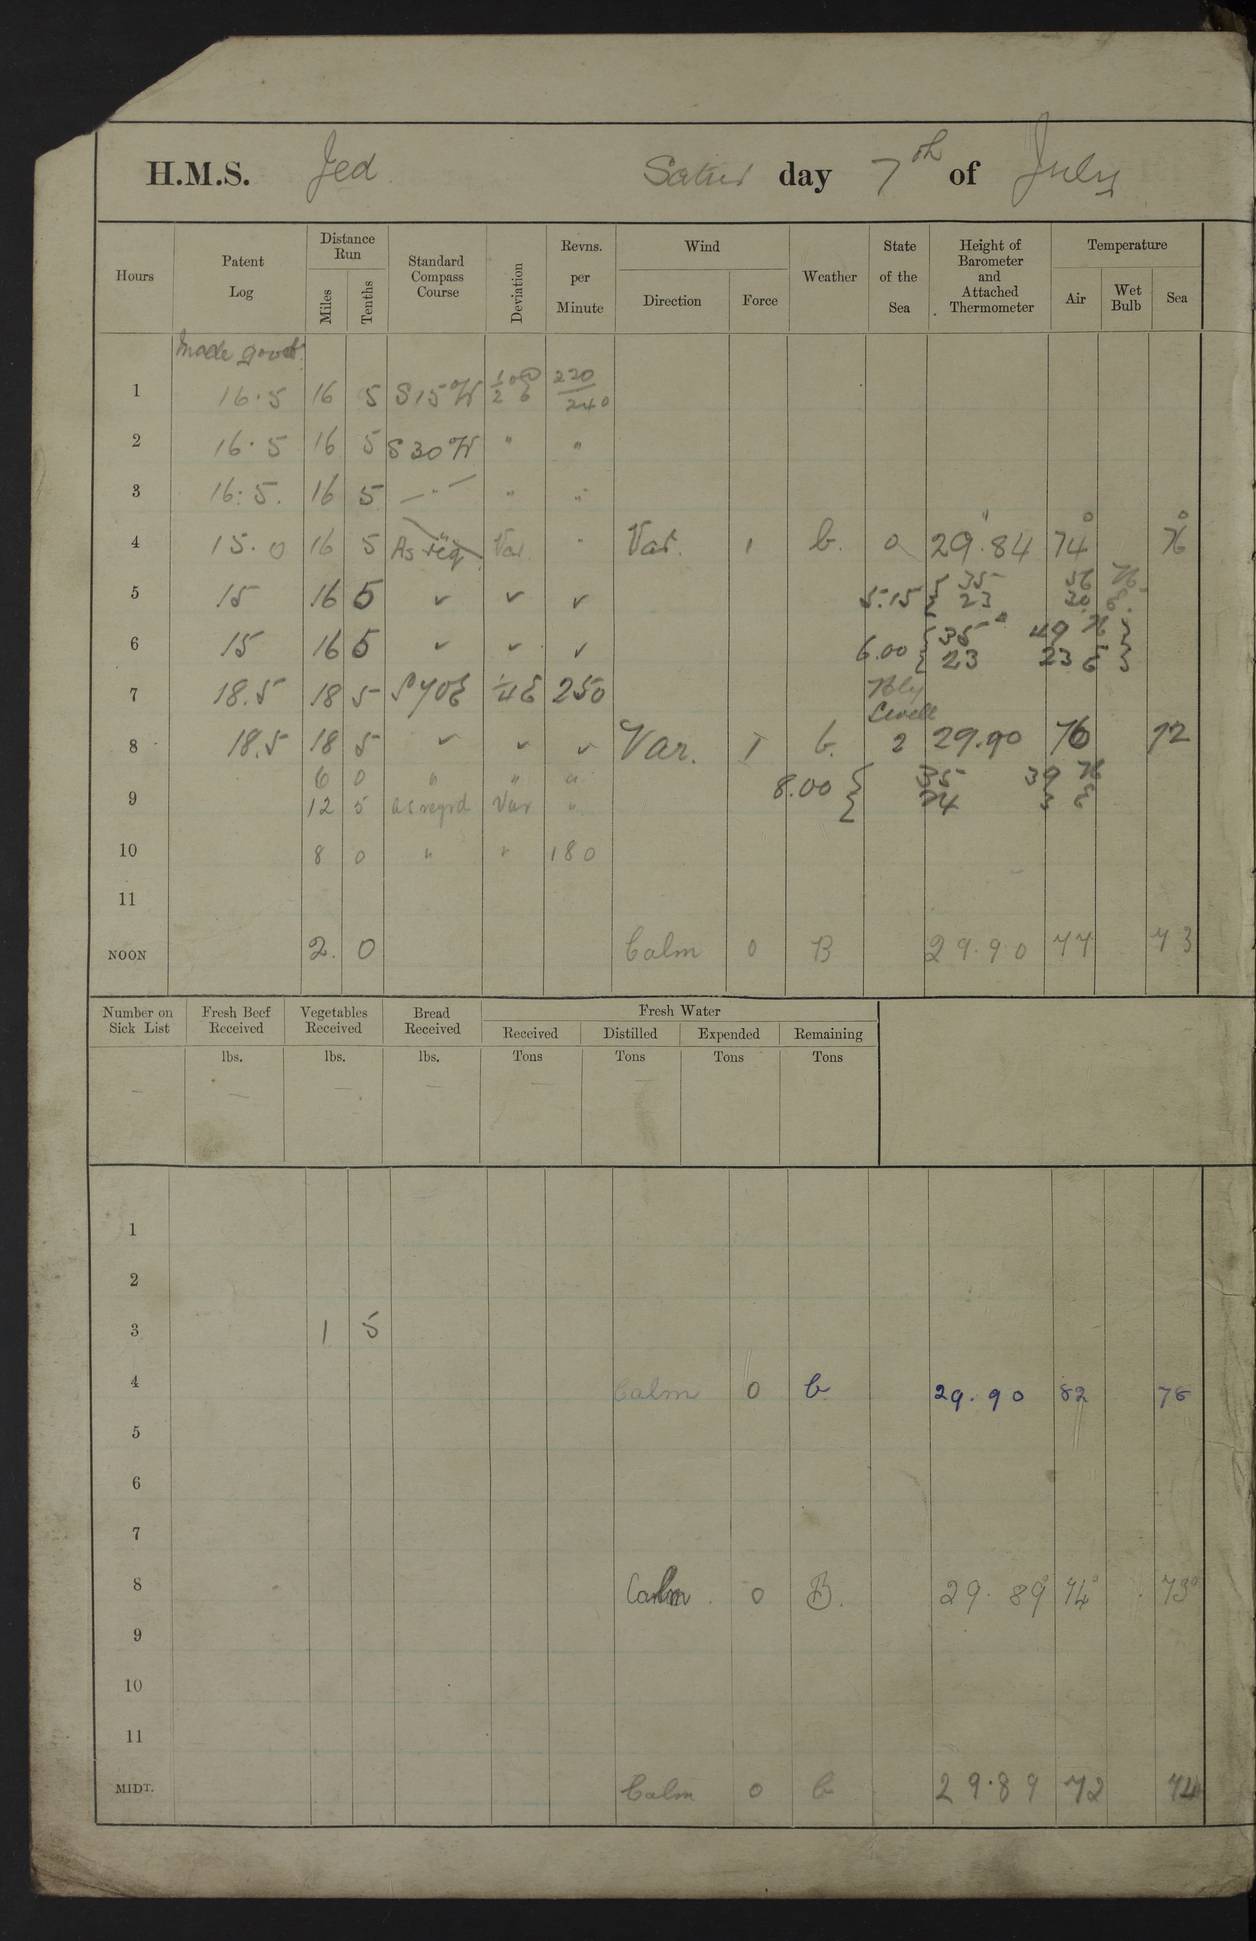 H.M.S. Jed Satur day 7th of July
Hours Patent Log Distance Run Miles Tenths Standard Compass Course Deviation Revns. per Minute Wind Direction Force Weather State of the Sea Height of Barometer and Attached Thermometer Temperature Air Wet Bulb Sea
Made good
1 16.5 16 5 S15W 1/2 220/240
2 16.5 16 5 S30W " "
3 16.5. 16 5 — " — " "
4 15.0 16 5 As req Var. " Var. 1 b. 0 29.84 74° 76°
5 15 16 5 ✓ ✓ ✓ 5.15 { 35 56 N
23 30 E.
6 15 16 5 ✓ ✓ ✓ 6.00 { 35° 49 N }
23 23 E }
7 18.5 18 5 S70E 1/4E 250 Nly
Swell
8 18.5 18 5 ✓ ✓ ✓ Var. 1 b. 2 29.90 76 72
6 0 " " "
8.00 { 35 39 N
24 3 E
9 12 5 as reqrd Var "
10 8 0 " " 180
11
NOON 2. 0 Calm 0 B 29.90 77 73
Number on Sick List Fresh Beef Received Vegetables Received Bread Received Fresh Water
Received Distilled Expended Remaining
lbs. lbs. lbs. Tons Tons Tons Tons
— — — — — —
1
2
3 1 5
4 Calm 0 b 29.90 82 78
5
6
7
8 Calm. 0 B. 29.89 74° 73°
9
10
11
MIDT. Calm 0 b 29.89 72 74